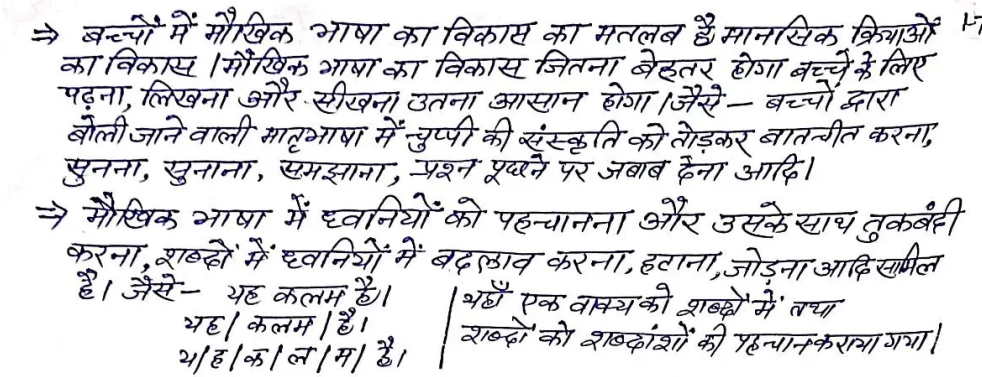 ⇒ बच्चों में मौखिक भाषा का विकास का मतलब है मानसिक क्रियाओं
का विकास। मौखिक भाषा का विकास जितना बेहतर होगा बच्चे के लिए
पढ़ना, लिखना और सीखना उतना आसान होगा। जैसे – बच्चों द्वारा
बोली जाने वाली मातृभाषा में चुप्पी की संस्कृति को तोड़कर बातचीत करना,
सुनना, सुनाना, समझाना, प्रश्न पूछने पर जबाब देना आदि।
⇒ मौखिक भाषा में ध्वनियों को पहचानना और उसके साथ तुकबंदी
करना, शब्दों में ध्वनियों में बदलाव करना, हटाना, जोड़ना आदि सामिल
है। जैसे – यह कलम है।
यह | कलम | है।
य | ह | क | ल | म | है।
यहाँ एक वाक्य को शब्दों में तथा
शब्दों को शब्दांशों की पहचान कराया गया।